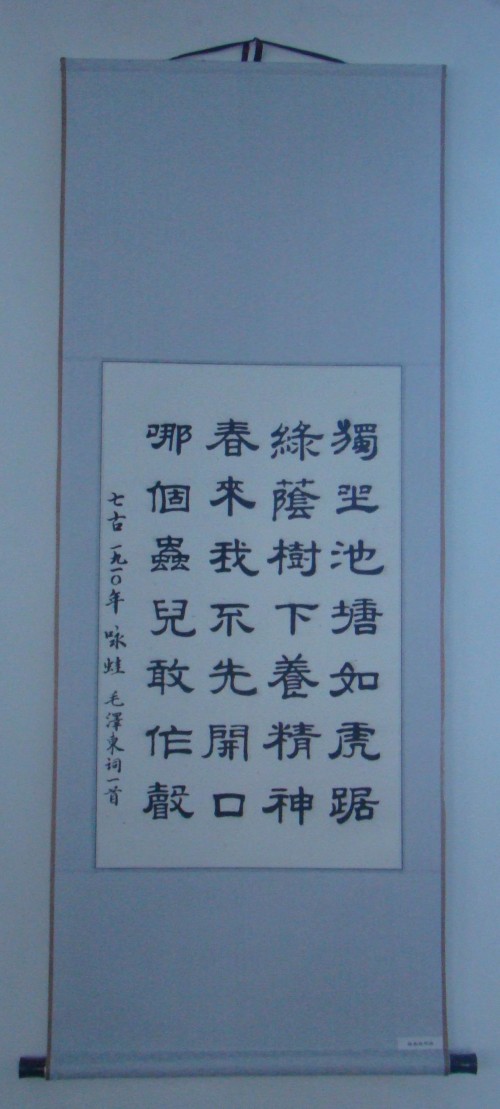 獨坐池塘如虎踞
綠蔭樹下養精神
春來我不先開口
哪個蟲兒敢作聲
七古 一九一〇年 咏蛙 毛澤東词一首